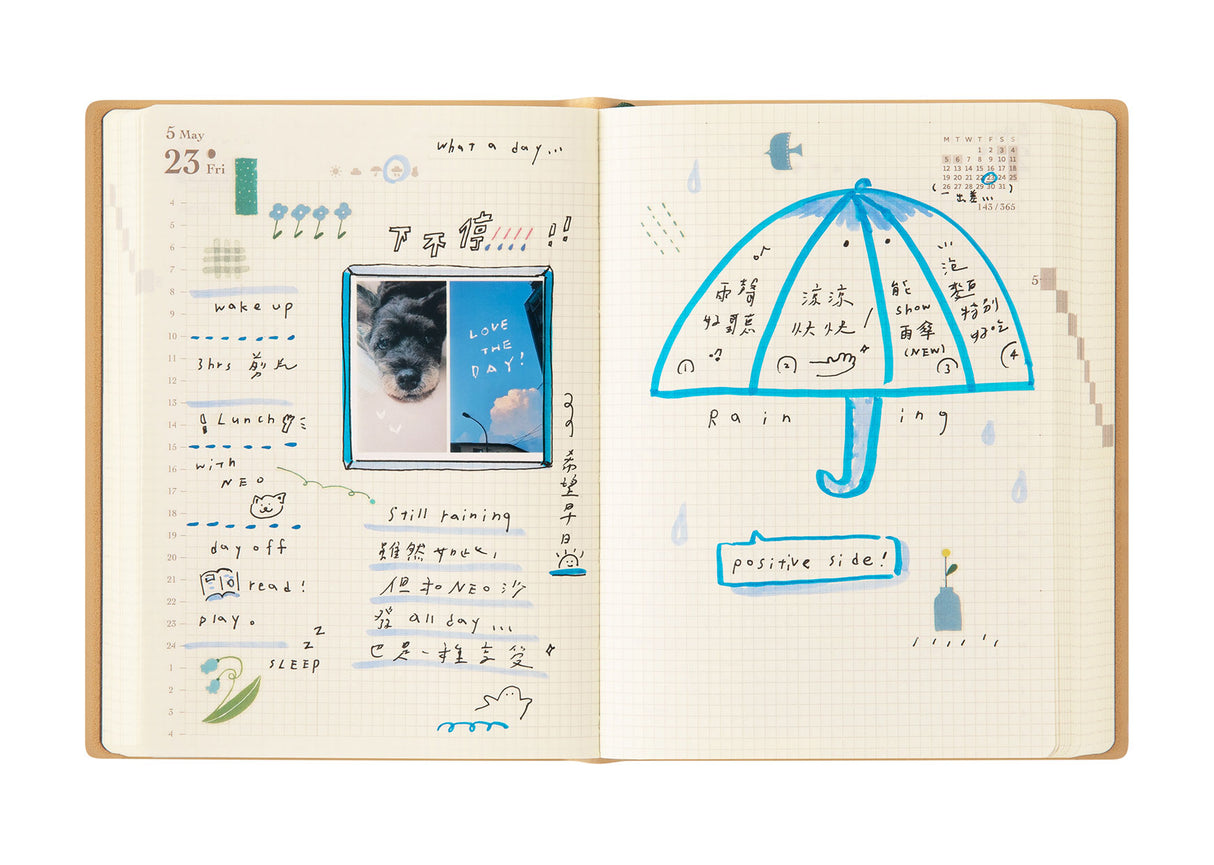 5 May
23 Fri
what a day...
4
5
6
7
8
9
10
11
12
13
14
15
16
17
18
19
20
21
22
23
24
1
2
3
4
下不停 !!
wake up
3hrs 剪片
Lunch
with
NEO
day off
read!
play。
z
z
SLEEP
LOVE
THE
DAY!
希望早日
Still raining
雖然如此，
但和NEO沙
發 all day...
也是一種享受
M T W T F S S
1 2 3 4
5 6 7 8 9 10 11
12 13 14 15 16 17 18
19 20 21 22 23 24 25
26 27 28 29 30 31
(一出差...)
143/365
5
雨聲
好聽
①
涼涼
快快!
②
能
show
雨傘
(NEW)
③
泡麵
特別
好吃
④
Rain ing
positive side!